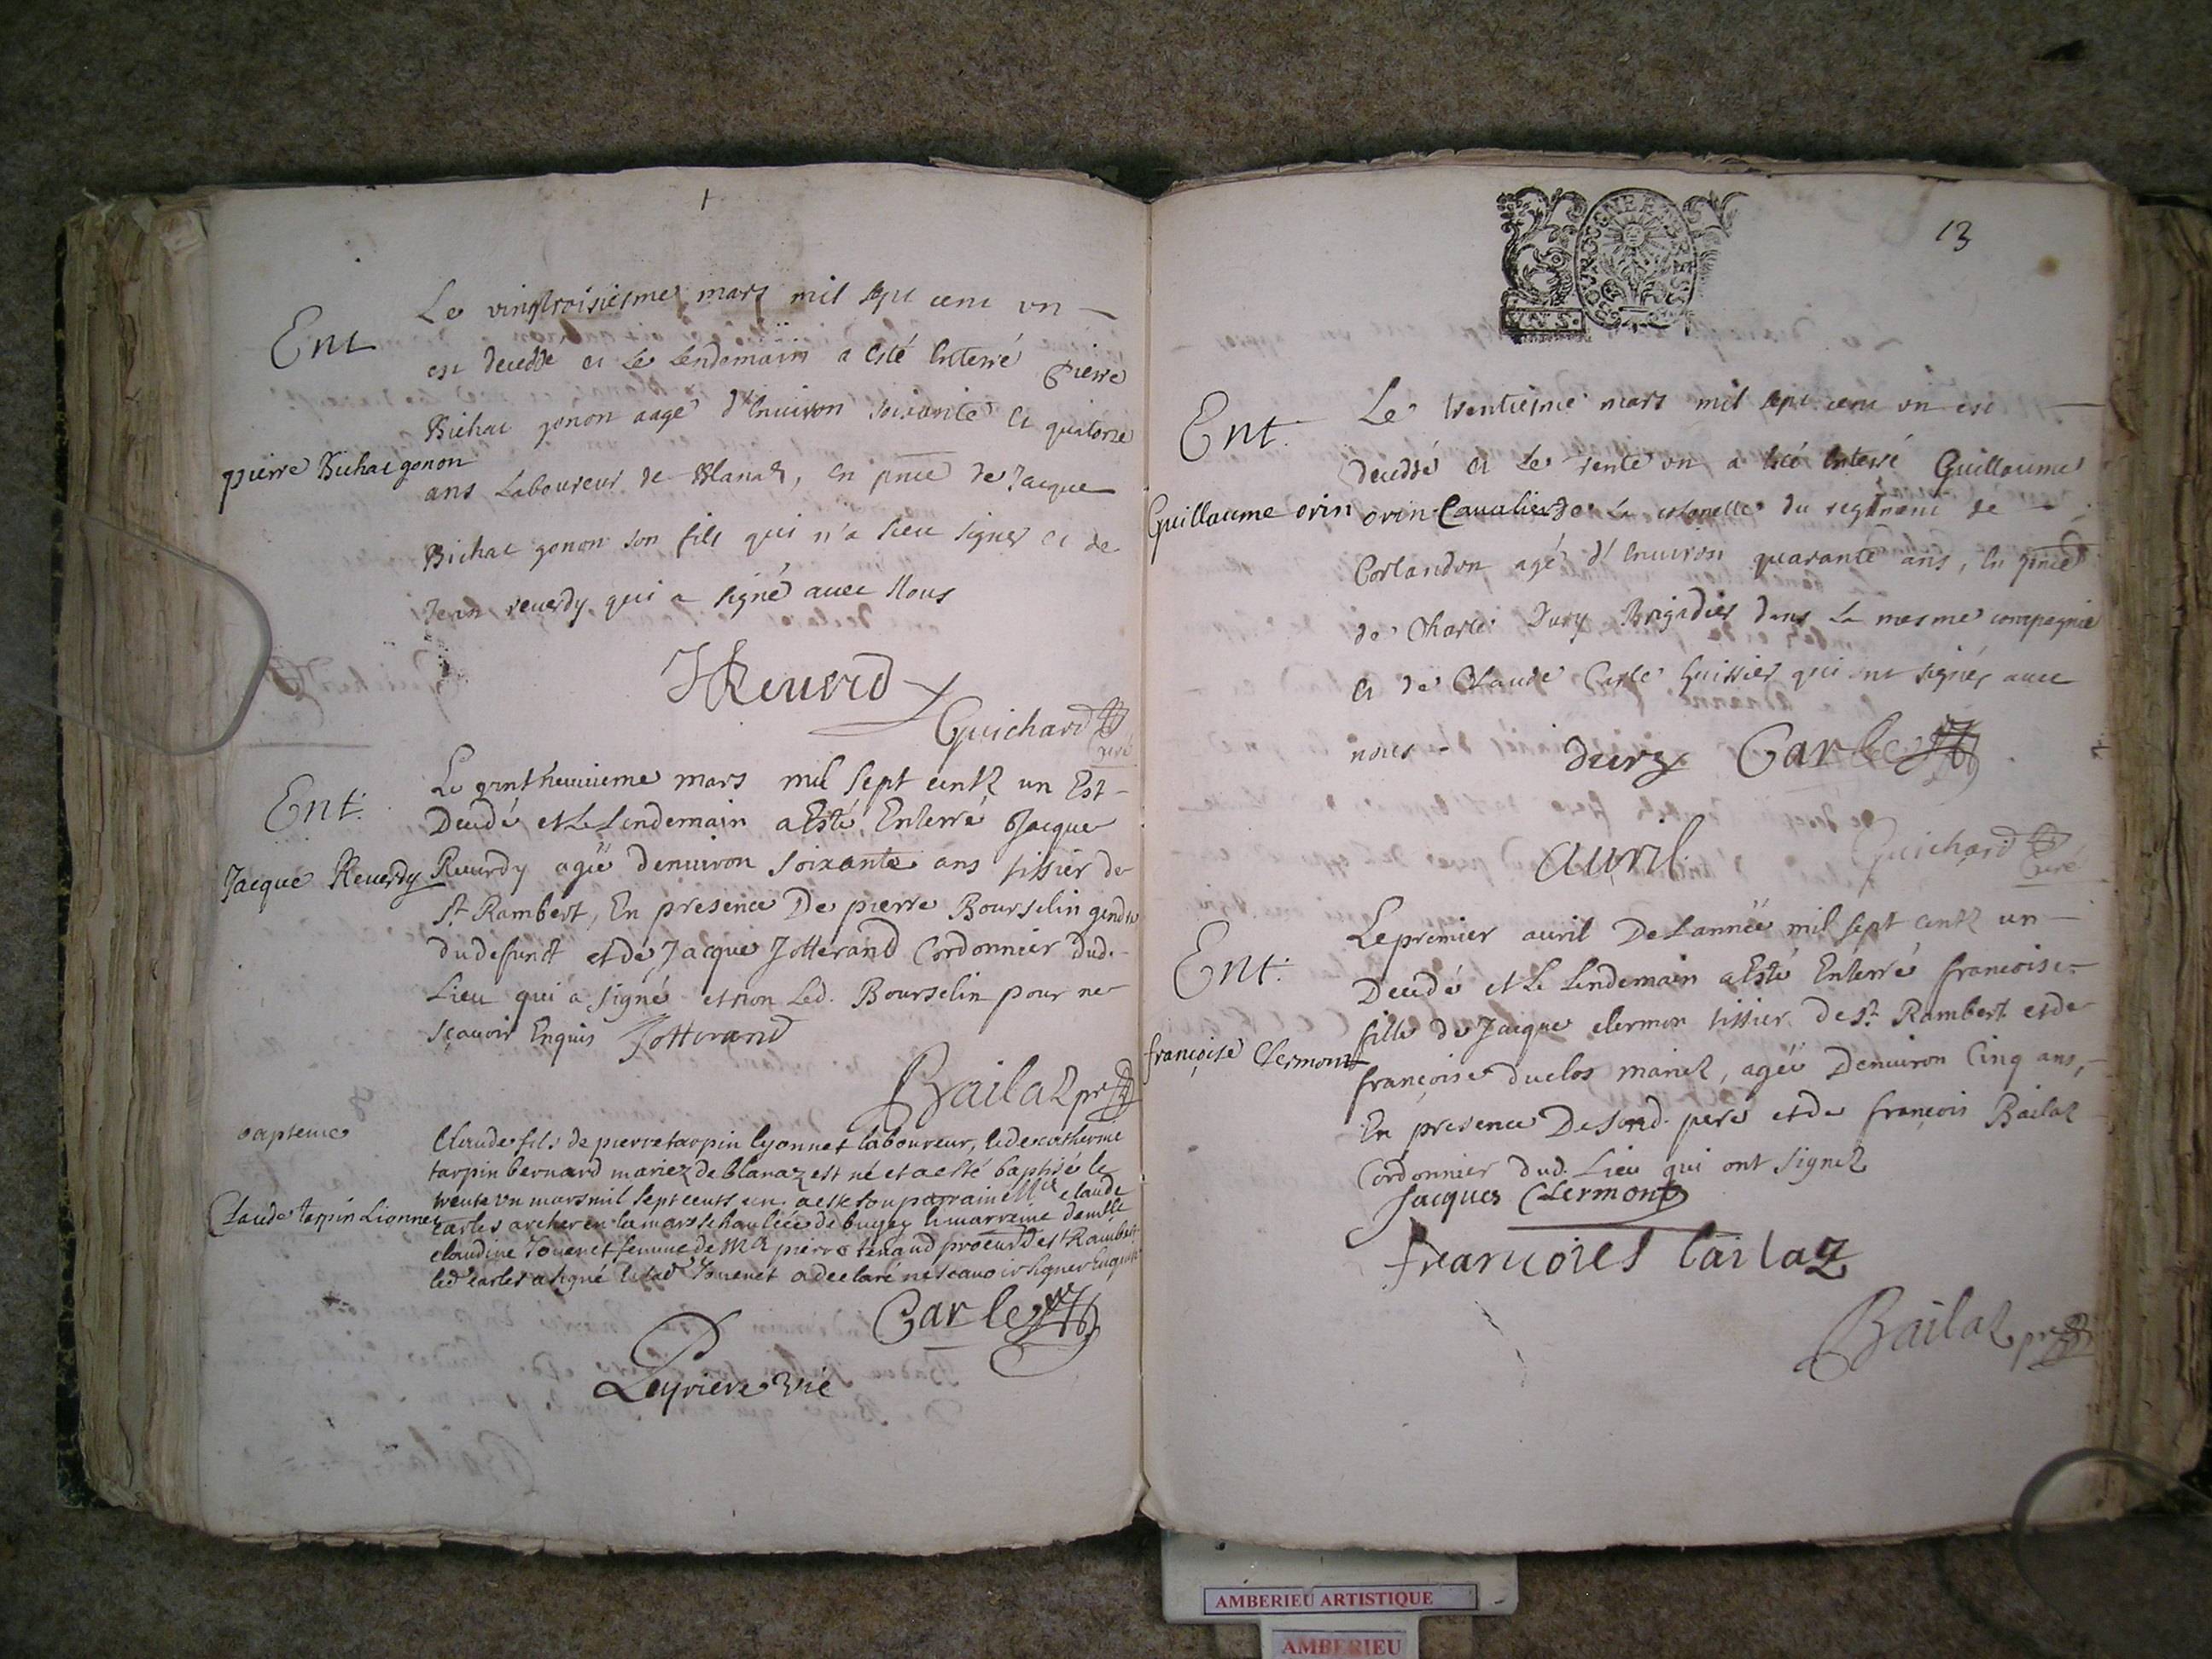 Ent
pierre Bichat gonon
Le vingtroisiesme mars mil sept cent un
est decedde et Le Lendemain a esté Enterré Pierre
Bichat gonon aage d'Environ soixante et quatorze
ans Laboureur de Blanaz, en pnce de Jacque
Bichat gonon son fils qui n'a sceu signer et de
Jean reuerdy qui a signé auec Nous
JReuerd
Guichard
Curé
Ent.
Jacque Reuerdy
Le vint heuuieme mars mil sept centz un Est
Decedé et Le Lendemain a Esté Enterré Jacque
Reuerdy agée denuiron soixante ans tissier de
St Rambert, En presence De pierre Bourselin gendre
du defunct et de Jacque Jotterand Cordonnier dud.
Lieu qui a signé et non Led. Bourselin pour ne
sçauoir Enquis Jotterand
Bailaz pr
bapteme
Claude tarpin Lionnet
Claude fils de pierre tarpin lyonnet laboureur, et de catherine
tarpin bernard mariez de blanaz est né et a esté baptisé le
trente un mars mil sept cents un. a esté son parrain Mr claude
Carles archer en la mareschaulcée de bugey et marreine demlle
claudine Jouenet femme de Mr pierre tenand procurr de st Rambert
led carles a signé et lad Jouenet a declaré ne scauoir signer Enquise
Carle
Leyriere vic
13
Ent.
Guillaume orin
Le trentiesme mars mil sept cent un est
deceddé et Le trente un a été Enterré Guillaume
orin Caualier de La colonelle du regiment de
Corlandon agé d'Enuiron quarante ans, En pnce
de Charle Dury Brigadier dans La mesme compagnie
et de Claude Carle huissier qui ont signés auec
nous
dury Carle
Guichard
Curé
auril
Ent.
françoise Clermont
Le premier auril De Lannée mil sept centz un
Decedé et Le Lendemain a Esté Enterré francoise
fille de Jacque clermon tissier de St Rambert et de
françoise duclos mariez, agée Denuiron Cinq ans,
En presence De sond. pere et de françois Bailaz
Cordonnier dud. Lieu qui ont signez
Jacques Clermont
francoies bailaz
Bailaz pr
AMBERIEU ARTISTIQUE
AMBERIEU